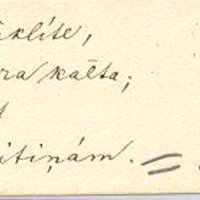 klīte,
ra kalta;
t
itiņām. =